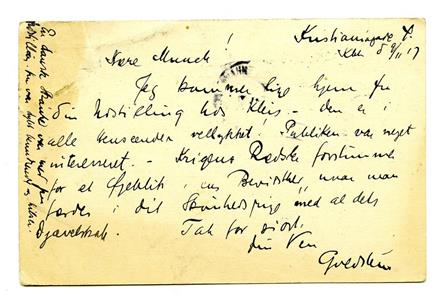 Kristianiagade
Kbh 8/11 17
Kære Munch!
Jeg kommer lige hjem fra
din Udstilling hos Kleis – den er i
alle henseender vellykket! Publiken var meget
interesseret. – Krigens Rædsler forstummer
for et Øjeblik i ens Bevidsthed, naar man
færdes i dit Skønhedsrige med al dets
Djævelskab. Tak for sidst.
din Ven
Goldstein
En dansk